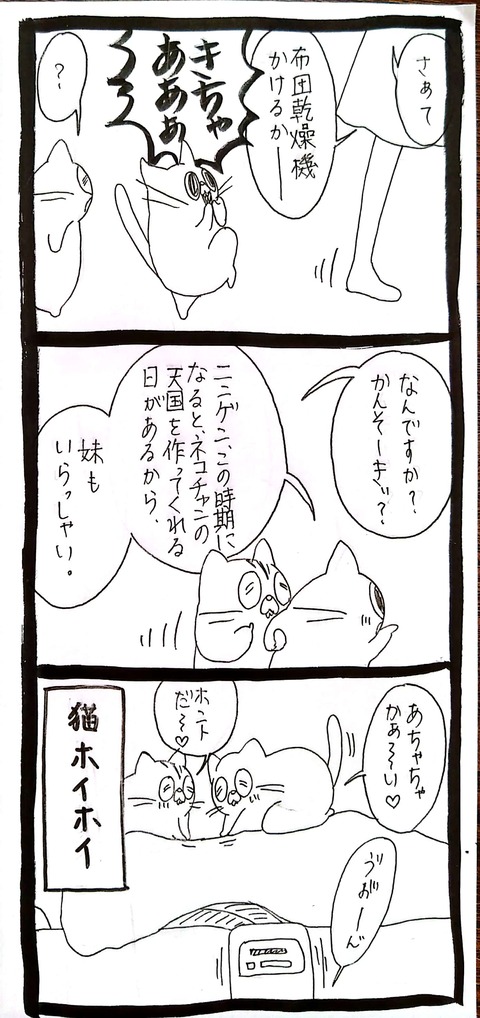 さぁて
布団乾燥機
かけるかー
キンちゃ
あああぁ
ううう
？
なんですか？
かんそーきぃ？
ニンゲン、この時期に
なると、ネコチャンの
天国を作ってくれる
日があるから、
妹も
いらっしゃい。
あちゃちゃ
かぁ〜い♡
ホント
だ〜♡
猫ホイホイ